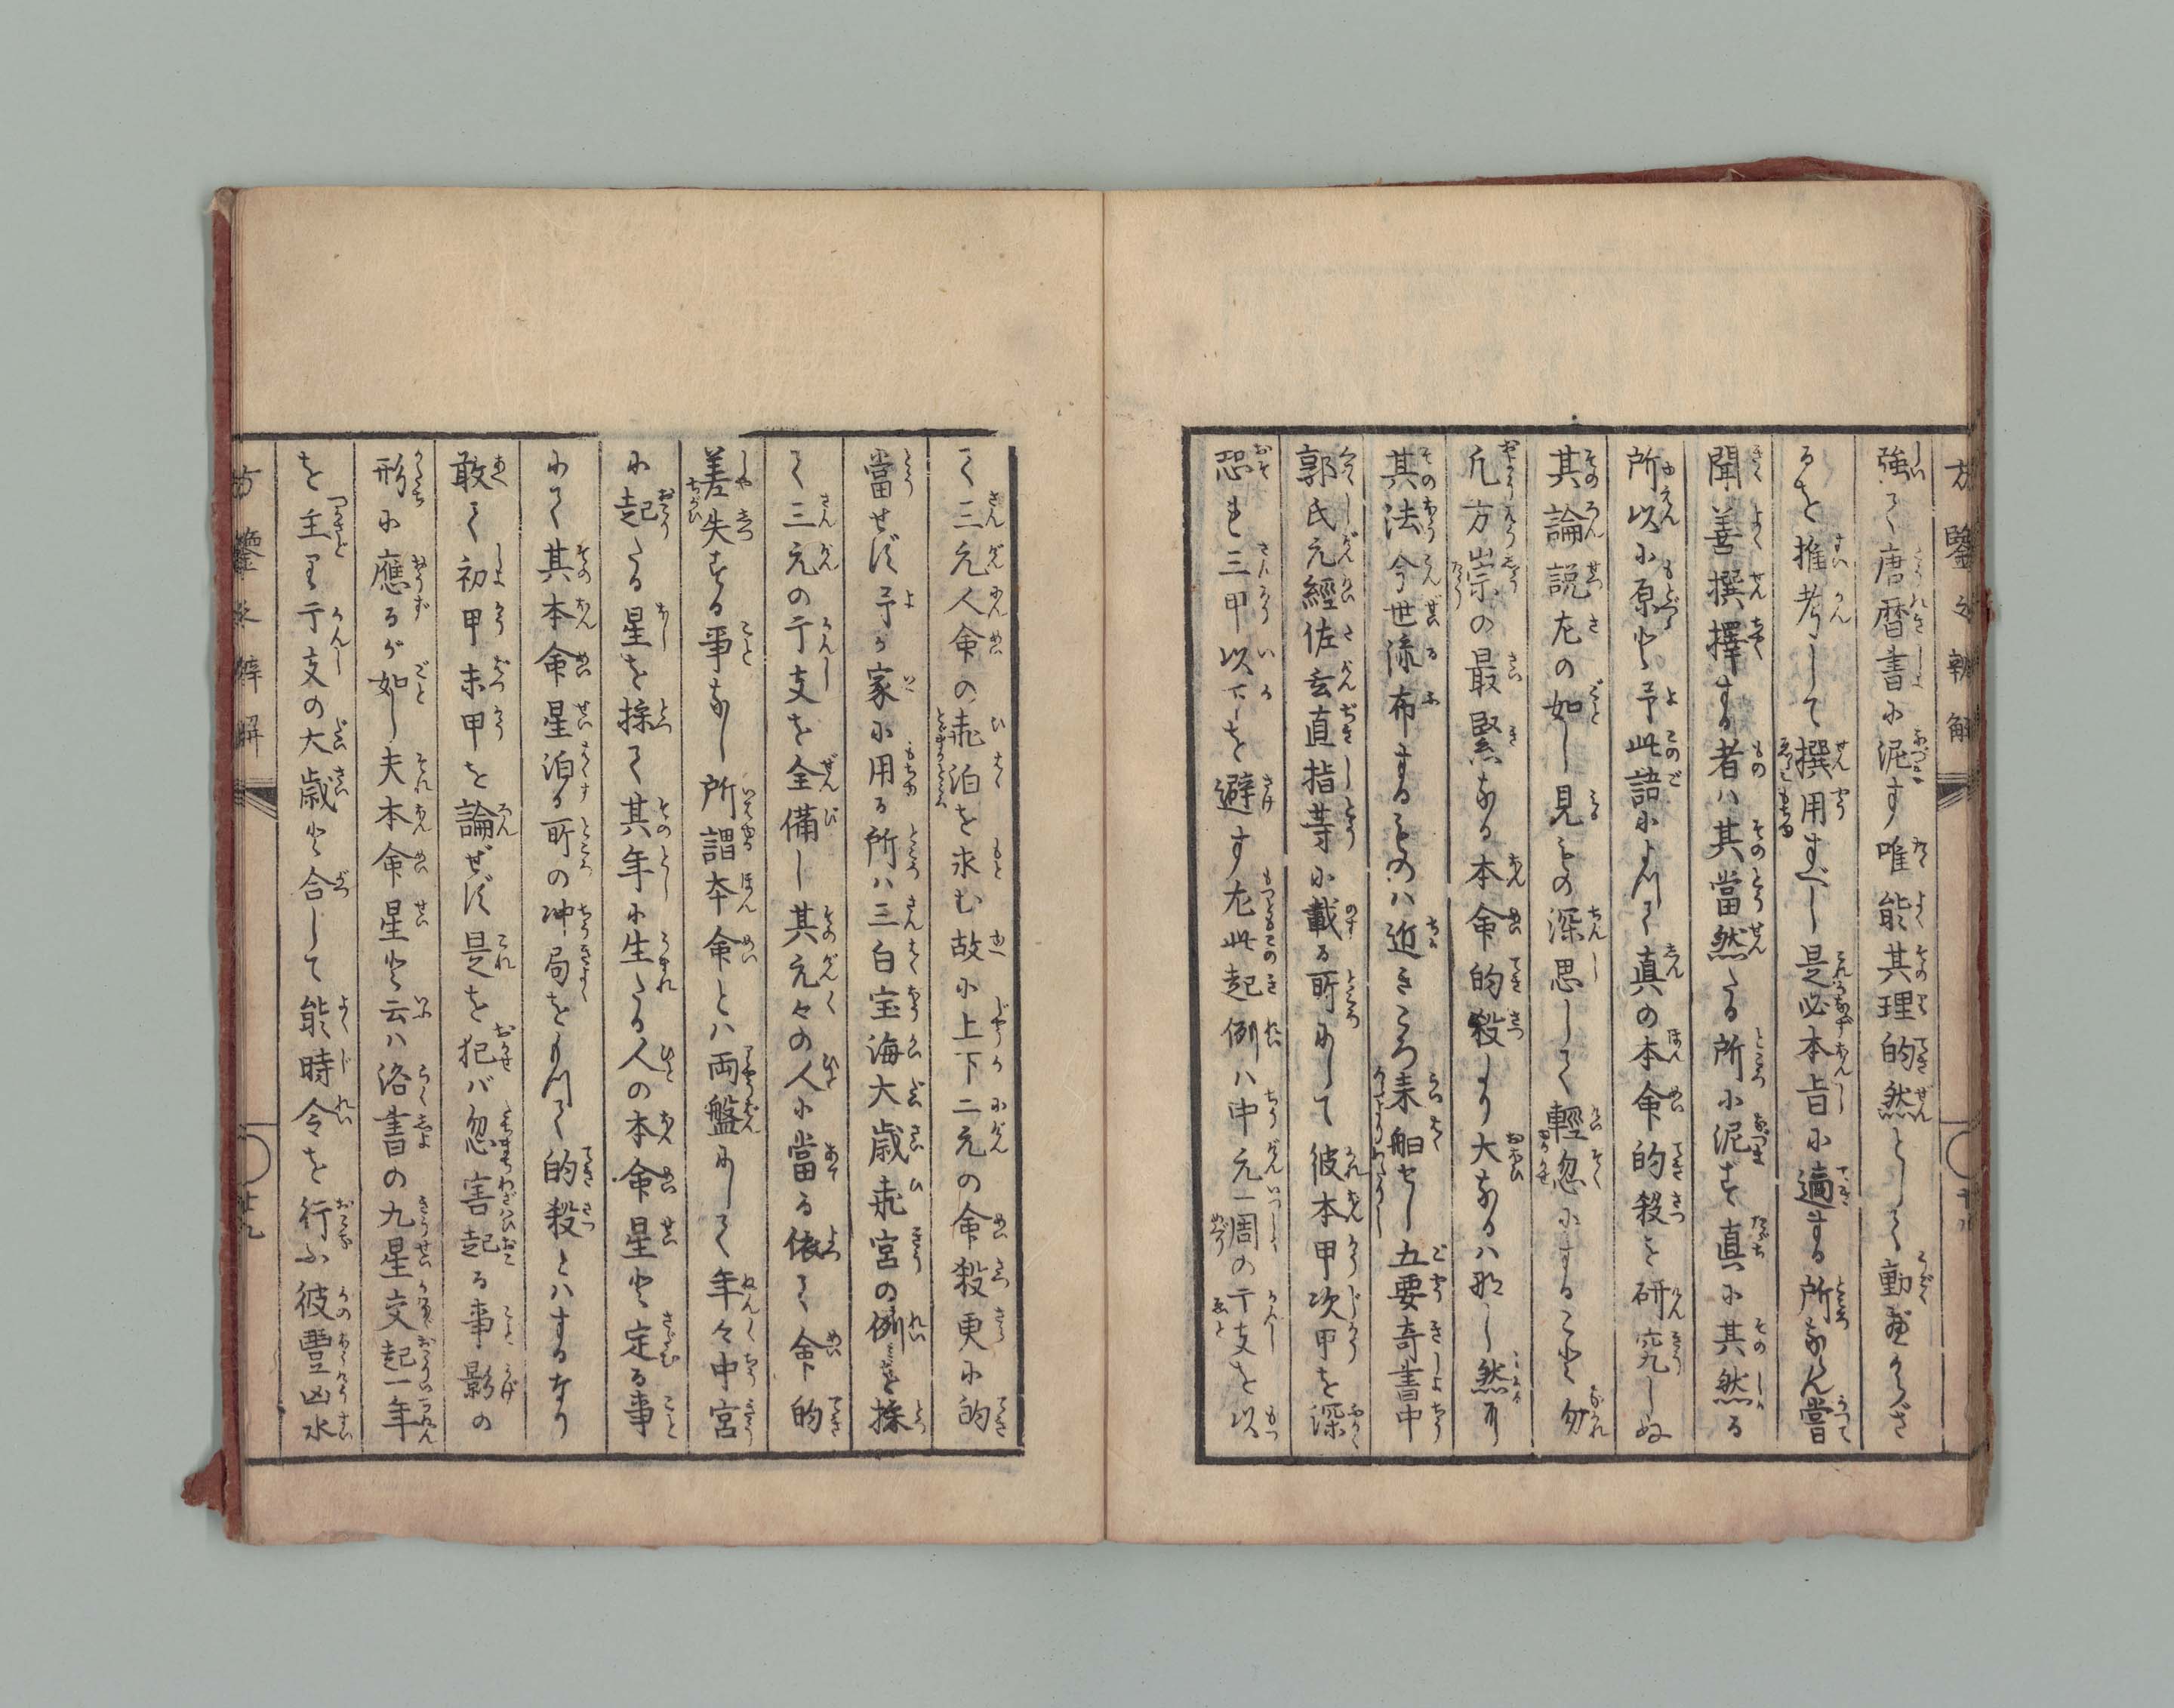 方鑒必携辨解
強て唐暦書に泥す唯能其理的然として動ざ
るを推考して撰用すべし是必本旨に適する所ならん嘗
聞善撰擇する者ハ其當然たる所に泥ミ真に其然る
所以に原と予此語によつて真の本命的殺を研究しぬ
其論説左の如し見もの深思して輕忽にすること勿
凡方祟の最緊なる本命的殺より大なるハ那し然り
其法今世流布するものハ近きころ来舶せし五要奇書中
郭氏元經佐玄直指等に載る所にして彼本甲次甲を深
恐も三甲以下を避す尤此起例ハ中元一周の干支を以
て三元人命の飛泊を求む故に上下二元の命殺更に的
當せず予が家に用る所ハ三白宝海大歳飛宮の例を採
て三元の干支を全備し其元々の人に當る依て命的
差失する事なし所謂本命とハ両盤にして年々中宮
に起たる星を採て其年に生たる人の本命星と定る事
にて其本命星泊る所の冲局をもつて的殺とハするなり
敢て初甲末甲を論ぜず是を犯バ忽害起る事影の
形に應るが如し夫本命星と云ハ洛書の九星交起一年
を主り干支の大歳と合して能時令を行ふ彼豊凶水
方鑒必辨解
廿九